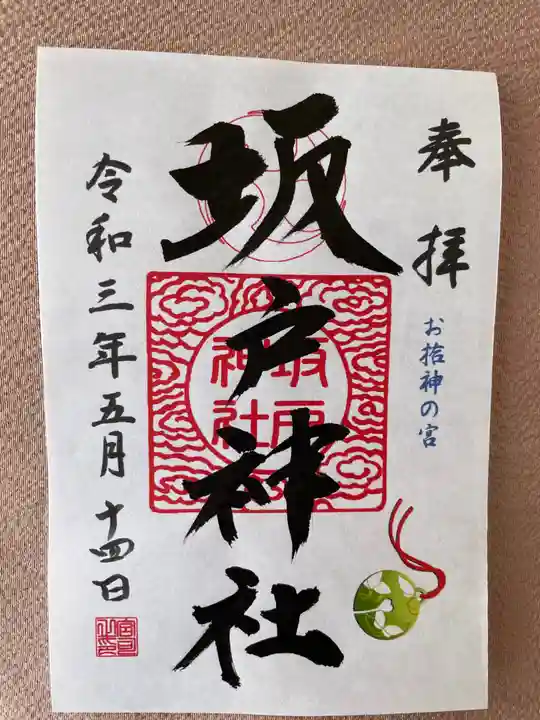 奉拝
お拾神の宮
坂戸神社
坂戸
神社
令和三年五月十四日